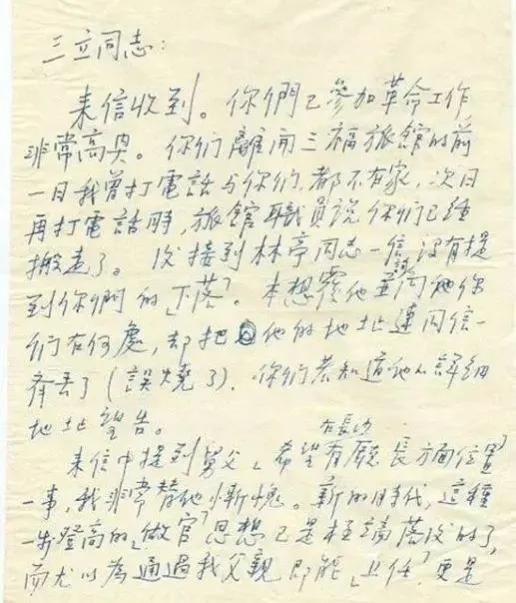 三立同志:
来信收到。你們已參加革命工作
非常高兴。你们離開三福旅館的前
一日我曾打電話与你们,都不在家,次日
再打電話時,旅館職員说你们已經
搬走了。後接到林亭同志一信,没有提
到你們的「下落」。本想覆他並询问他你
们在何處,却把他的地址連同信一
齊丢了(誤燒了)。你们若知道他的詳細
地址望告。
来信中提到舅父「希望在長沙有廳長方面位置」
一事,我非常替他慚愧。新的時代,這種
一步登高的「做官」思想已是极端落後的了,
而尤以為通過我父親即能「上任」,更是